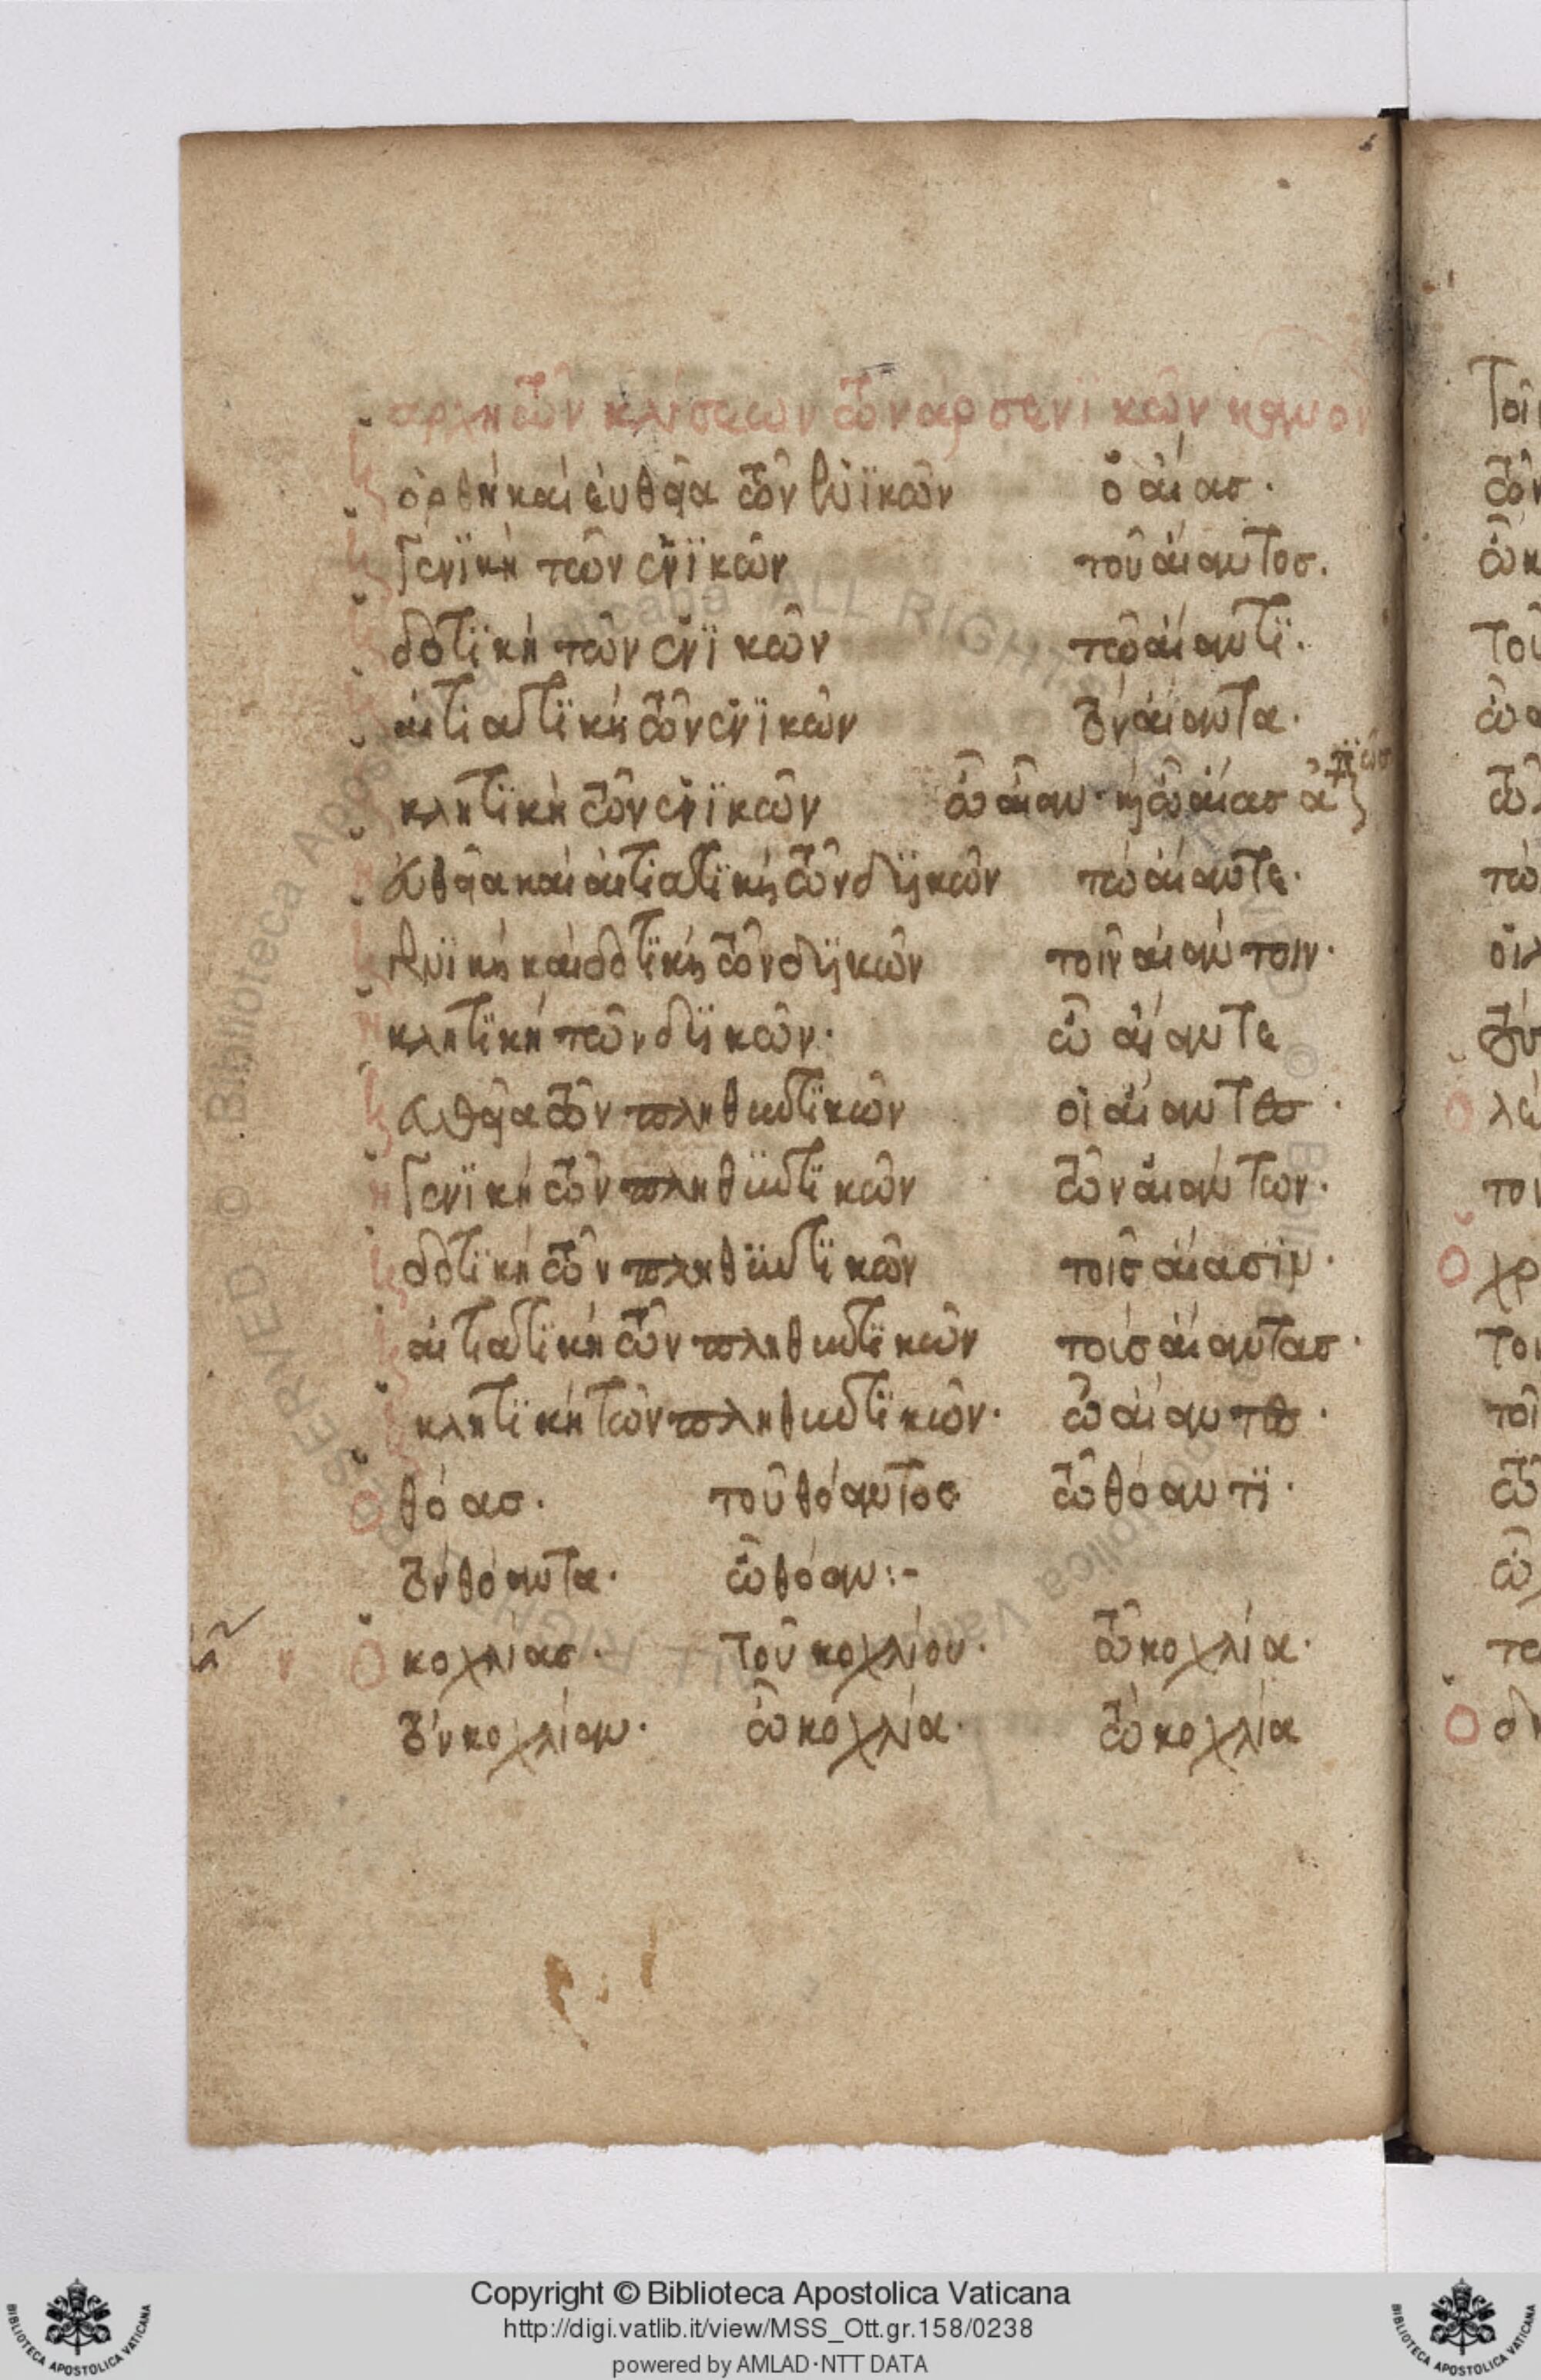 ἀρχὴ τῶν κλίσεων τῶν ἀρσενικῶν κανον
ὀρθὴ καὶ εὐθεῖα τῶν ἑνϊκῶν ὁ αἴας·
Γενϊκὴ τῶν ἑνϊκῶν τοῦ αἴαντος.
δοτϊκὴ τῶν ἑνϊκῶν τῶ αἴαντϊ·
αἰτιατϊκὴ τῶν ἑνϊκῶν τὸν αἴαντα·
κλητϊκὴ τῶν ἑνϊκῶν ὦ αἶαν· καὶ ὦ αἴας
εὐθεῖα καὶ αἰτιατϊκὴ τῶν δυϊκῶν τὼ αἴαντε·
Γενϊκὴ καὶ δοτϊκὴ τῶν δυϊκῶν τοῖν αἰάντοιν·
κλητϊκὴ τῶν δυϊκῶν· ὦ αἴαντε
εὐθεῖα τῶν πληθυντϊκῶν οἱ αἴαντες·
Γενϊκὴ τῶν πληθυντϊκῶν τῶν αἰάντων·
δοτϊκὴ τῶν πληθυντϊκῶν τοῖς αἴασϊν·
αἰτιατϊκὴ τῶν πληθυντϊκῶν τοὺς αἴαντας·
κλητϊκὴ τῶν πληθυντϊκῶν· ὦ αἴαντες·
Ὁ θόας· τοῦ θόαντος τῶ θόαντϊ·
τὸν θόαντα· ὦ θόαν:-
Ὁ κοχλίας· τοῦ κοχλίου· τῶ κοχλία·
τὸν κοχλίαν· ὦ κοχλία· τὼ κοχλία
Copyright © Biblioteca Apostolica Vaticana
http://digi.vatlib.it/view/MSS_Ott.gr.158/0238
powered by AMLAD·NTT DATA